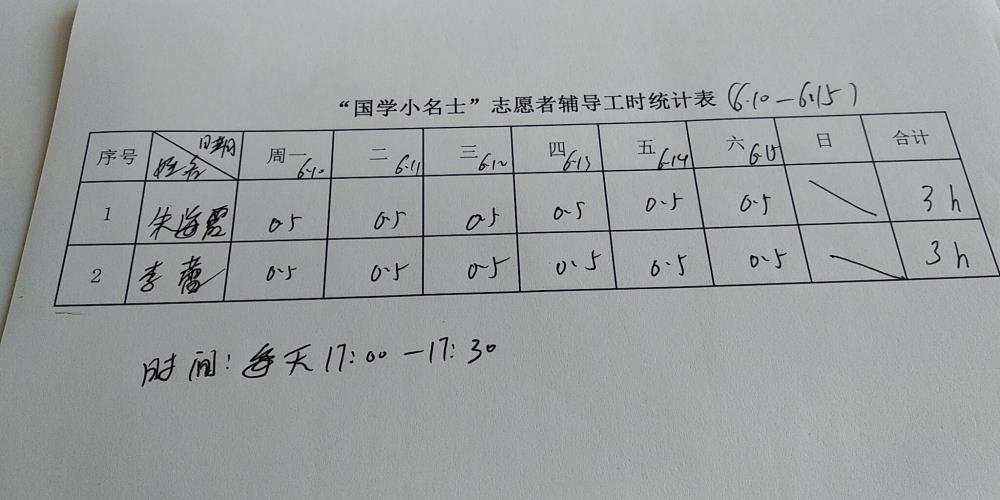 “国学小名士”志愿者辅导工时统计表(6.10-6.15)
序号 日期 姓名 周一6.10 二6.11 三6.12 四6.13 五6.14 六6.15 日 合计
1 朱海霞 0.5 0.5 0.5 0.5 0.5 0.5 \ 3h
2 李蕾 0.5 0.5 0.5 0.5 0.5 0.5 \ 3h
时间:每天17:00-17:30